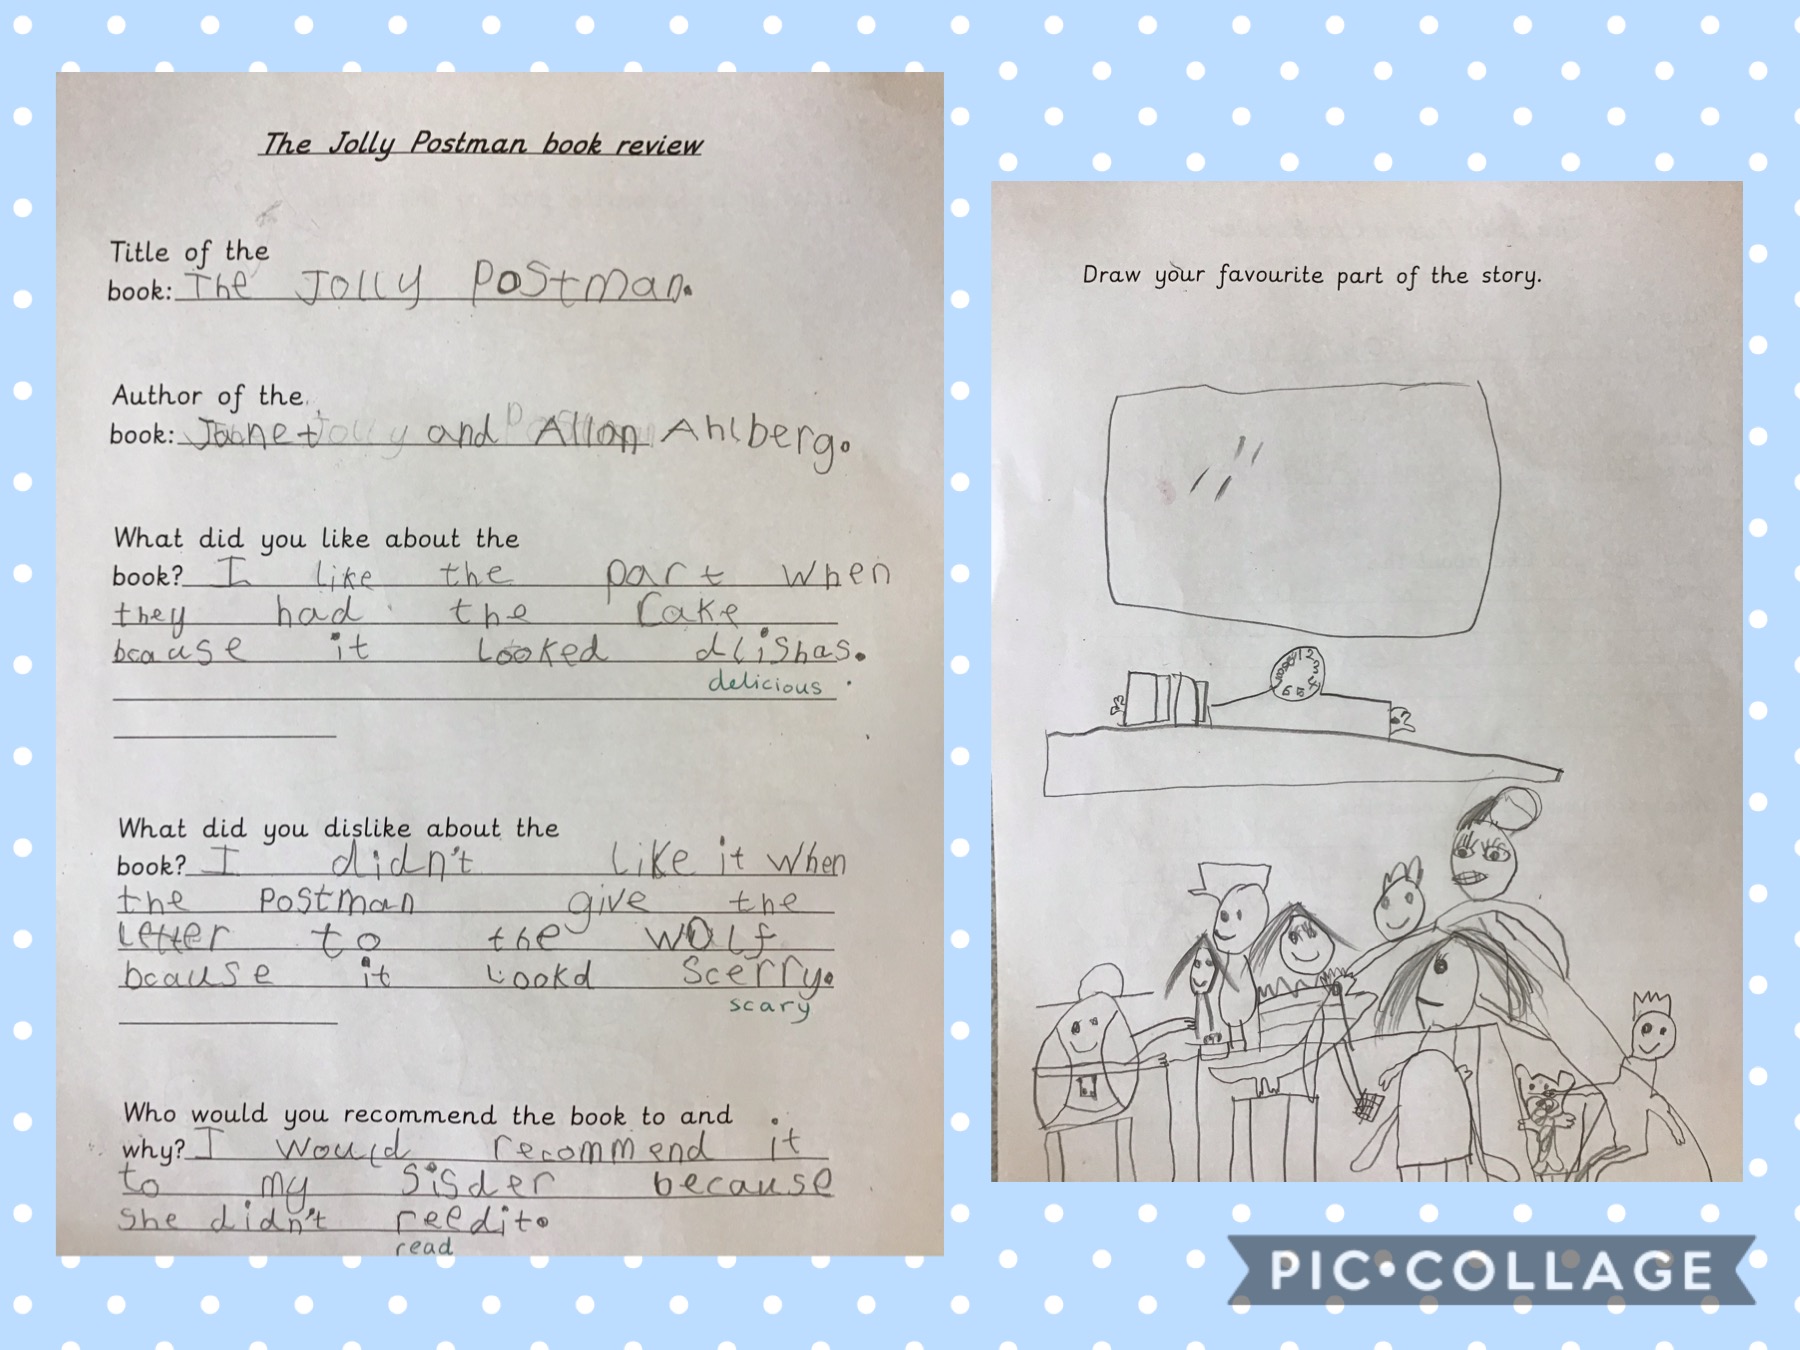 The Jolly Postman book review
Title of the
book: The Jolly Postman.
Author of the
book: Janet and Allan Ahlberg.
What did you like about the
book? I like the part when
they had the cake
bcause it Looked dlishas.
delicious
What did you dislike about the
book? I didn't like it when
the Postman give the
Letter to the wolf
bcause it Lookd Scerry.
scary
Who would you recommend the book to and
why? I would recommend it
to my Sisder because
She didn't reedit.
read
Draw your favourite part of the story.
PIC•COLLAGE